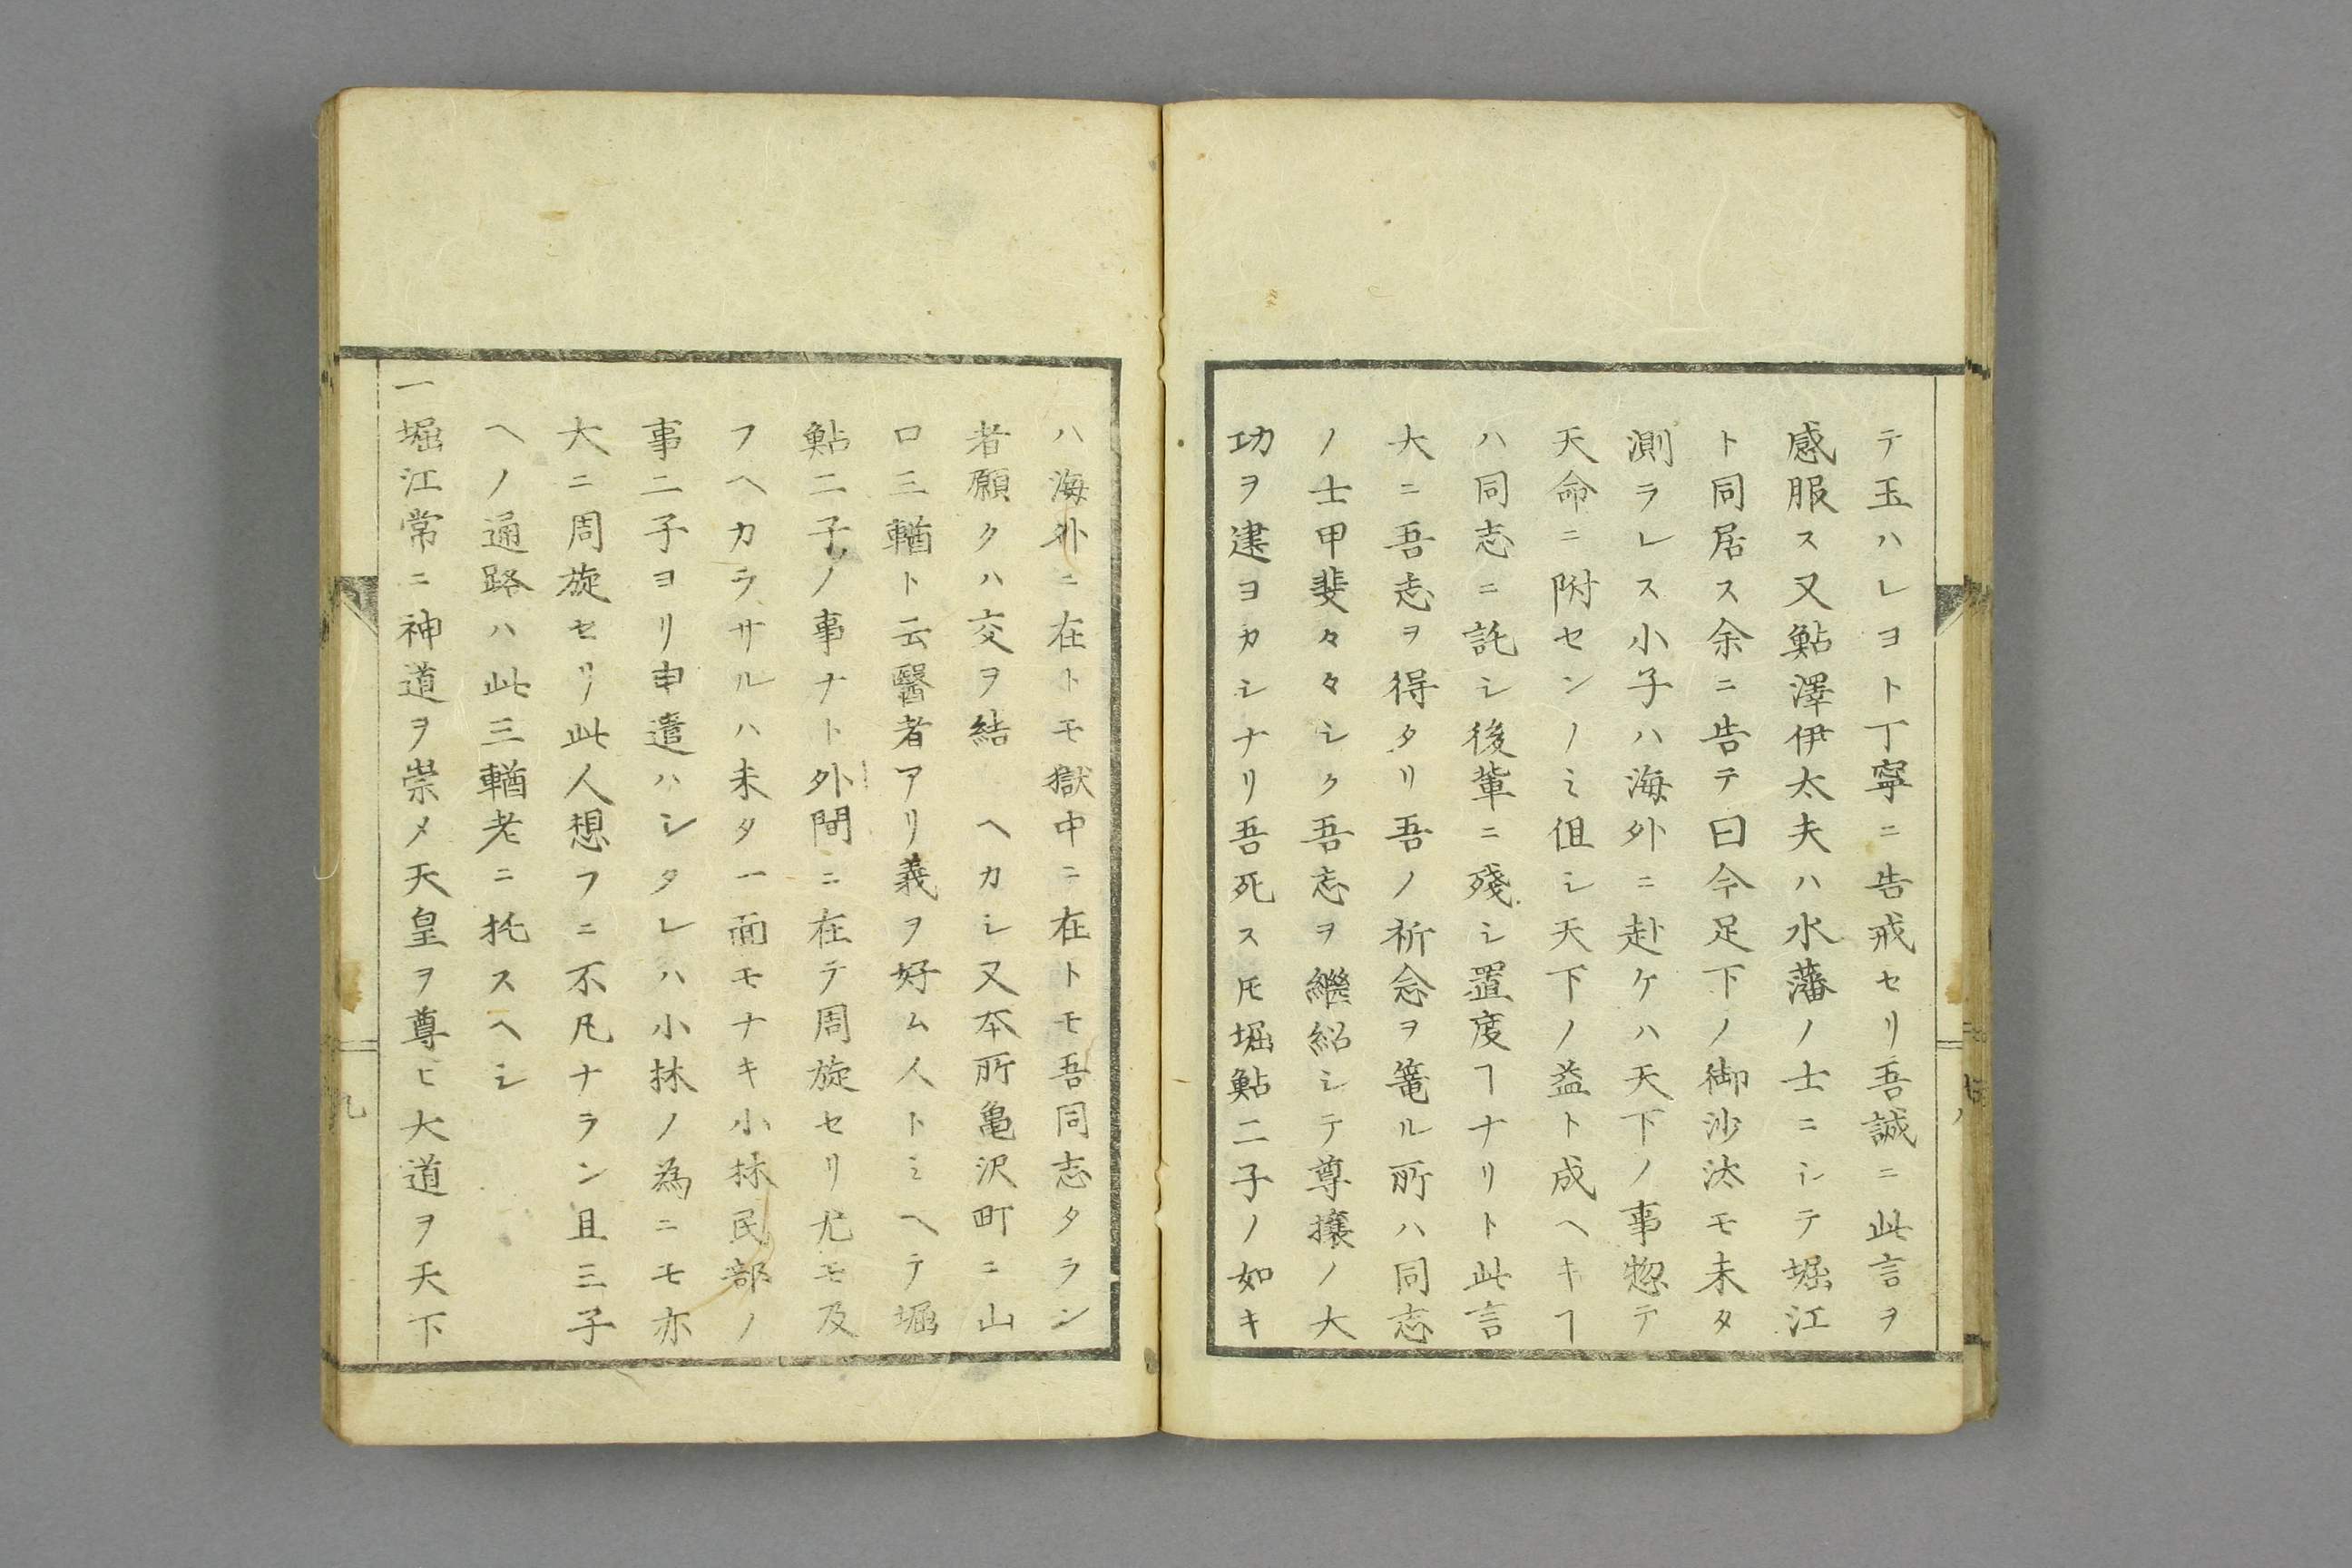 テ玉ハレヨト丁寧ニ告戒セリ吾誠ニ此言ヲ
感服ス又鮎澤伊太夫ハ水藩ノ士ニシテ堀江
ト同居ス余ニ告テ曰今足下ノ御沙汰モ未タ
測ラレス小子ハ海外ニ赴ケハ天下ノ事惣テ
天命ニ附センノミ但シ天下ノ益ト成ヘキヿ
ハ同志ニ託シ後輩ニ殘シ置度ヿナリト此言
大ニ吾志ヲ得タリ吾ノ祈念ヲ篭ル所ハ同志
ノ士甲斐々々シク吾志ヲ繼紹シテ尊攘ノ大
功ヲ建ヨカシナリ吾死ストモ堀鮎二子ノ如キ
ハ海外ニ在トモ獄中ニ在トモ吾同志タラン
者願クハ交ヲ結ヘカシ又本所亀沢町ニ山
口三輶ト云醫者アリ義ヲ好ム人トミヘテ堀
鮎二子ノ事ナト外間ニ在テ周旋セリ尤モ及
フヘカラサルハ未タ一面モナキ小林民部ノ
事二子ヨリ申遣ハシタレハ小林ノ為ニモ亦
大ニ周旋セリ此人想フニ不凡ナラン且三子
ヘノ通路ハ此三輶老ニ托スヘシ
一堀江常ニ神道ヲ崇メ天皇ヲ尊ヒ大道ヲ天下
九